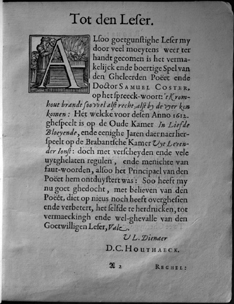 Tot den Leser.
ALsoo goetgunstighe Leser my
door veel moeytens weer ter
handt gecomen is het verma-
kelijck ende boertige Spel van
den Gheleerden Poëet ende
Doctor SAMUEL COSTER,
op het spreeck-woort: 't Krom-
hout brandt soo wel als recht, alst by de vyer kan
komen: Het welcke voor desen Anno 1612.
ghespeelt is op de Oude Kamer In Liefde
Bloeyende, ende eenighe Jaren daer naer her-
speelt op de Brabantsche Kamer Uyt Leven-
der Jonst: doch met verscheyden ende vele
uytghelaten regulen, ende menichte van
faut-woorden, alsoo het Principael van den
Poëet hem ontduystert was: Soo heeft my
nu goet ghedocht, met believen van den
Poëet, diet op nieus noch heeft overghesien
ende verbetert, het selfde te herdrucken, tot
vermaeckingh ende wel-ghevalle van den
Goetwilligen Leser, Vale.
V L. Dienaer
D. C. HOUTHAECK.
A 2